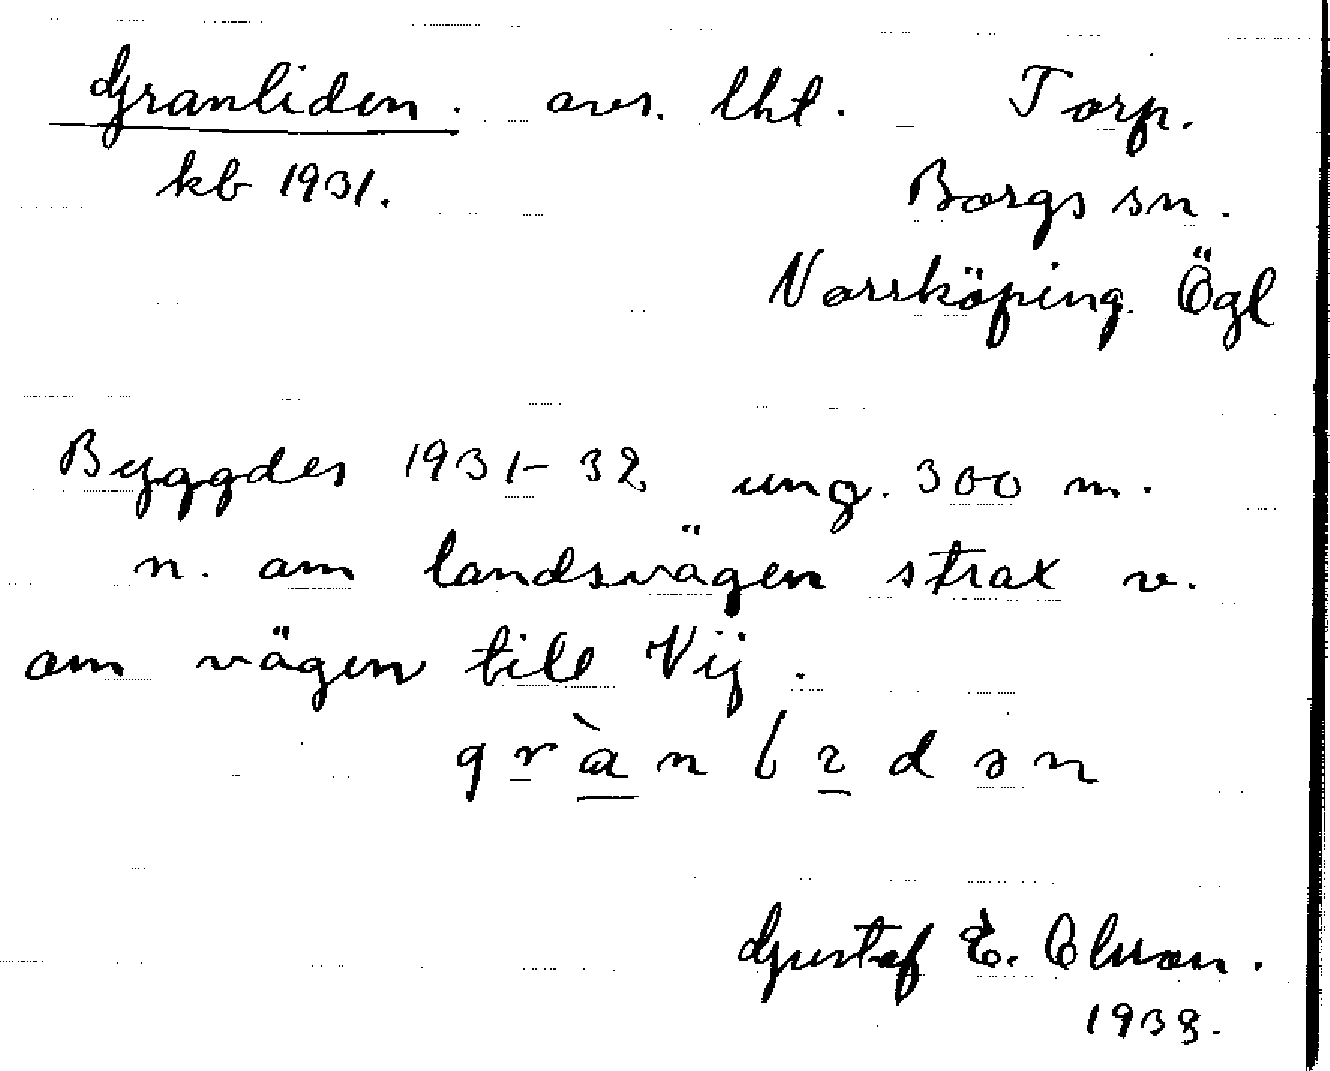 Granliden. avs. lht. Torp.
kb 1931. Borgs sn.
Norrköping Ögl
Byggdes 1931-32 ung. 300 m.
n. om landsvägen strax v.
om vägen till Vij.
gràn lɩdən
Gustaf E. Olsson.
1933.